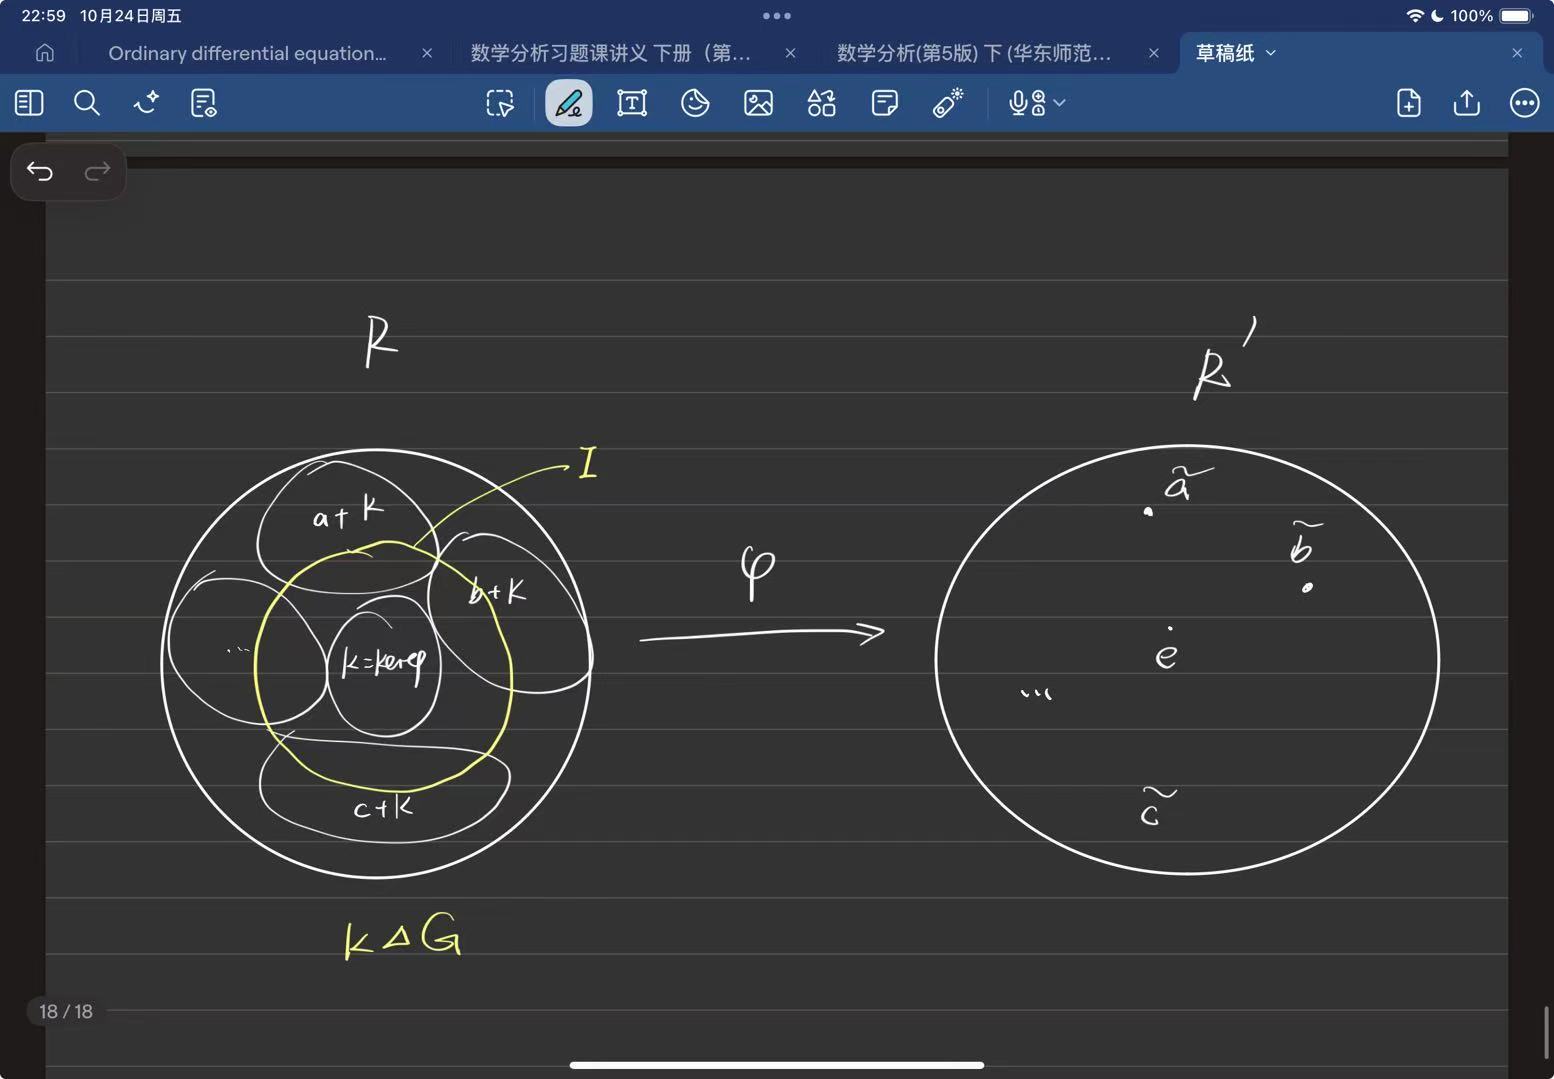 22:59 10月24日周五
100%
Ordinary differential equation...
数学分析习题课讲义 下册（第...
数学分析(第5版) 下 (华东师范...
草稿纸
R
R'
I
a+k
ã
b̃
b+k
φ
...
k=kerφ
e
...
c+k
c̃
k△G
18 / 18